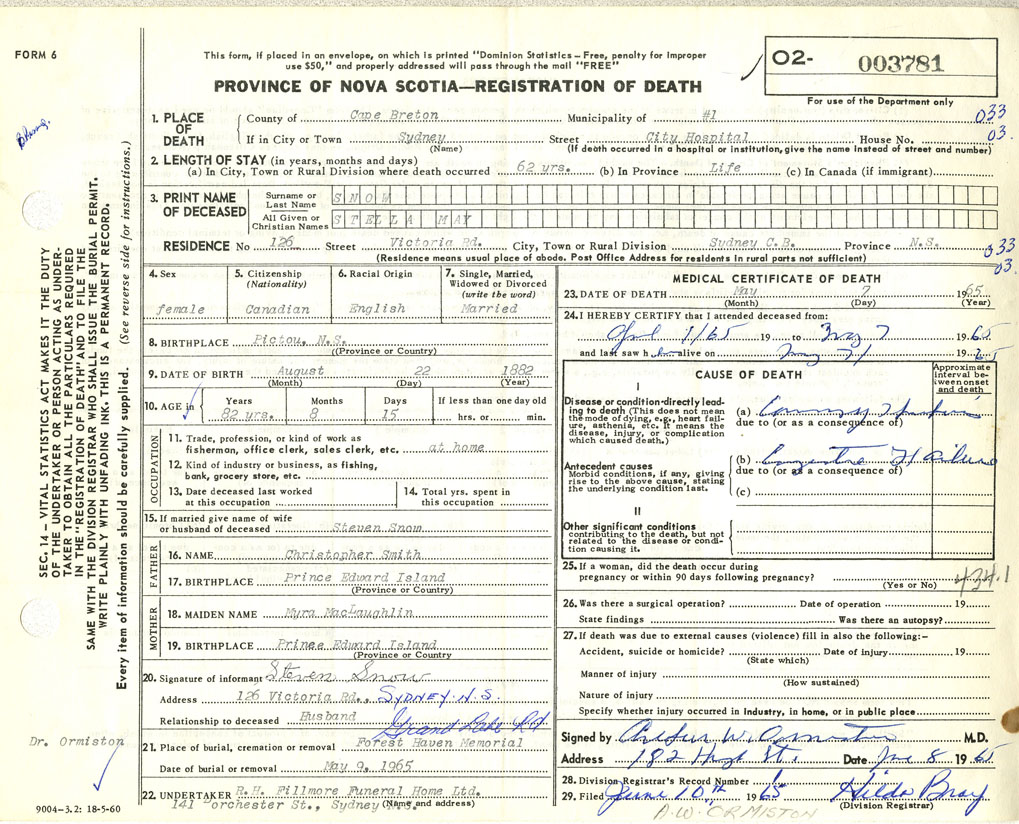 FORM 6
This form, if placed in an envelope, on which is printed "Dominion Statistics—Free, penalty for improper
use $50," and properly addressed will pass through the mail "FREE"
PROVINCE OF NOVA SCOTIA—REGISTRATION OF DEATH
02- 003781
For use of the Department only
1. PLACE OF DEATH
County of Cape Breton Municipality of #1 033
If in City or Town Sydney Street City Hospital House No. 03.
(Name) (If death occurred in a hospital or institution, give the name instead of street and number)
2. LENGTH OF STAY (in years, months and days)
(a) In City, Town or Rural Division where death occurred 62 yrs. (b) In Province Life (c) In Canada (if immigrant)
3. PRINT NAME OF DECEASED
Surname or Last Name SNOW
All Given or Christian Names STELLA MAY
RESIDENCE No 126 Street Victoria Rd. City, Town or Rural Division Sydney C.B. Province N.S. 033
(Residence means usual place of abode. Post Office Address for residents in rural parts not sufficient) 03.
4. Sex
female
5. Citizenship
(Nationality)
Canadian
6. Racial Origin
English
7. Single, Married,
Widowed or Divorced
(write the word)
Married
8. BIRTHPLACE Pictou, N.S.
(Province or Country)
9. DATE OF BIRTH August 22 1882
(Month) (Day) (Year)
10. AGE in Years Months Days If less than one day old
82 yrs. 8 15 hrs. or min.
OCCUPATION
11. Trade, profession, or kind of work as
fisherman, office clerk, sales clerk, etc. at home
12. Kind of industry or business, as fishing,
bank, grocery store, etc.
13. Date deceased last worked
at this occupation
14. Total yrs. spent in
this occupation
15. If married give name of wife
or husband of deceased Steven Snow
FATHER
16. NAME Christopher Smith
17. BIRTHPLACE Prince Edward Island
(Province or Country)
MOTHER
18. MAIDEN NAME Myra MacLaughlin
19. BIRTHPLACE Prince Edward Island
(Province or Country
20. Signature of informant Steven Snow
Address 126 Victoria Rd., SYDNEY. N.S.
Relationship to deceased Husband
Grand Lake Rd
21. Place of burial, cremation or removal Forest Haven Memorial
Date of burial or removal May 9, 1965
22. UNDERTAKER R.H. Fillmore Funeral Home Ltd.
141 orchester St., Sydney N.S.
(Name and address)
MEDICAL CERTIFICATE OF DEATH
23. DATE OF DEATH May 7 1965
(Month) (Day) (Year)
24. I HEREBY CERTIFY that I attended deceased from:
April 1/65 19 to May 7 1965
and last saw h alive on May 7/ 1965
CAUSE OF DEATH
Approximate
interval be-
tween onset
and death
I
Disease or condition-directly lead-
ing to death (This does not mean
the mode of dying, e.g., heart fail-
ure, asthenia, etc. It means the
disease, injury, or complication
which caused death.)
(a) Coronary
due to (or as a consequence of)
Antecedent causes
Morbid conditions, if any, giving
rise to the above cause, stating
the underlying condition last.
(b) Congestive H Failure
due to (or as a consequence of)
(c)
II
Other significant conditions
contributing to the death, but not
related to the disease or condi-
tion causing it.
25. If a woman, did the death occur during
pregnancy or within 90 days following pregnancy?
(Yes or No)
434.1
26. Was there a surgical operation? Date of operation 19
State findings Was there an autopsy?
27. If death was due to external causes (violence) fill in also the following:—
Accident, suicide or homicide? Date of injury 19
(State which)
Manner of injury
(How sustained)
Nature of injury
Specify whether injury occurred in industry, in home, or in public place
Signed by Arthur W. Ormiston M.D.
Address 182 High St. Date June 8 1965
28. Division Registrar's Record Number
29. Filed June 10th 1965 Hilda Bray
(Division Registrar)
A.W. ORMISTON
SEC. 14—VITAL STATISTICS ACT MAKES IT THE DUTY
OF THE UNDERTAKER OR PERSON ACTING AS UNDER-
TAKER TO OBTAIN ALL THE PARTICULARS REQUIRED
IN THE "REGISTRATION OF DEATH" AND TO FILE THE
SAME WITH THE DIVISION REGISTRAR WHO SHALL ISSUE THE BURIAL PERMIT.
WRITE PLAINLY WITH UNFADING INK. THIS IS A PERMANENT RECORD.
Every item of information should be carefully supplied. (See reverse side for instructions.)
Dr. Ormiston
9004-3.2: 18-5-60